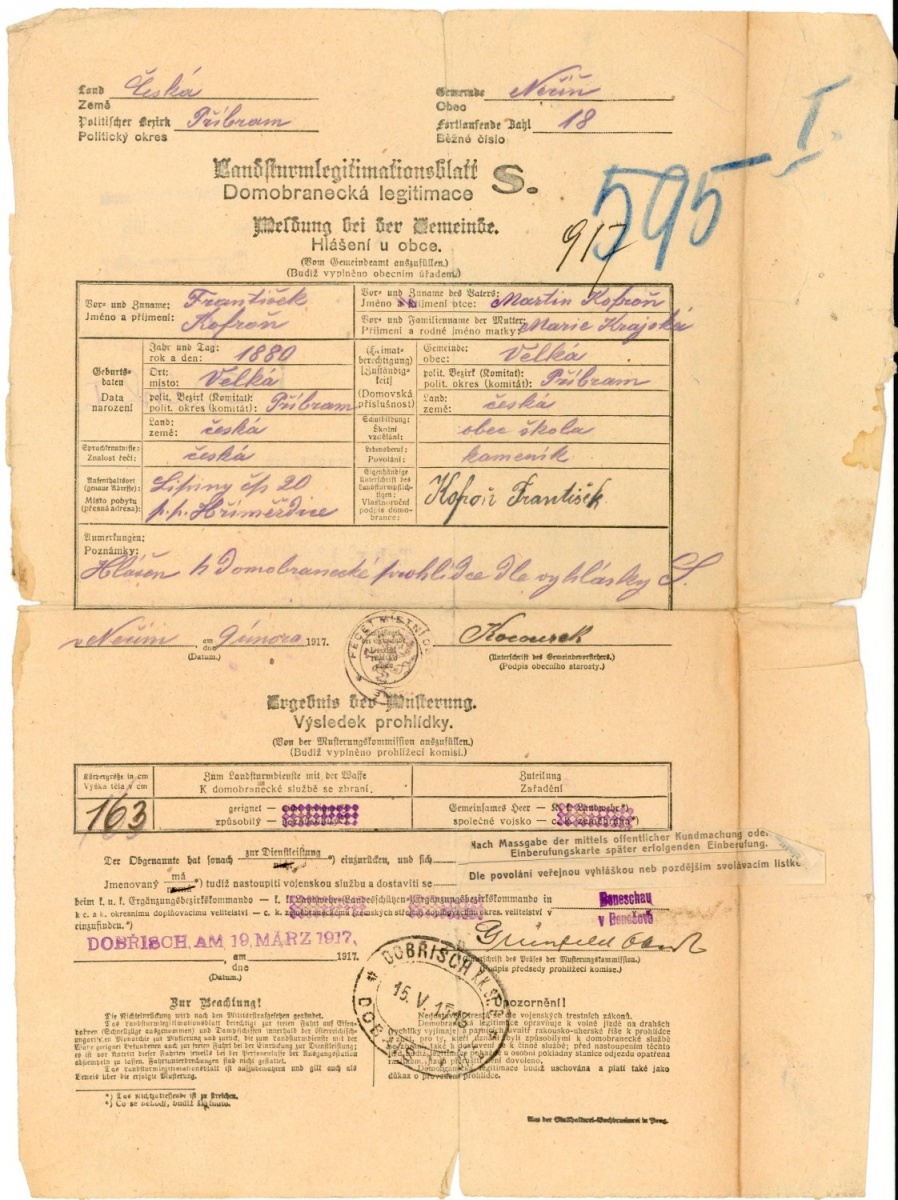 Land Česká
Země
Politischer Bezirk Příbram
Politický okres
Gemeinde Nečín
Obec
Fortlaufende Zahl 18
Běžné číslo
Landsturmlegitimationsblatt S.
Domobranecká legitimace
595 I.
917
Meldung bei der Gemeinde.
Hlášení u obce.
(Vom Gemeindeamt auszufüllen.)
(Budiž vyplněno obecním úřadem.)
Vor- und Zuname: František
Jméno a příjmení: Kofroň
Vor- und Zuname des Vaters:
Jméno a příjmení otce: Martin Kofroň
Vor- und Familienname der Mutter:
Příjmení a rodné jméno matky: Marie Krajská
Geburtsdaten
Data narození
Jahr und Tag:
rok a den: 1880
Ort:
místo: Velká
polit. Bezirk (Komitat):
polit. okres (komitát): Příbram
Land:
země: česká
(Heimatberechtigung)
[Zuständigkeit]
(Domovská příslušnost)
Gemeinde:
obec: Velká
polit. Bezirk (Komitat):
polit. okres (komitát): Příbram
Land:
země: česká
Sprachkenntnisse:
Znalost řečí: česká
Schulbildung:
Školní vzdělání: obec. škola
Lebensberuf:
Povolání: kameník
Aufenthaltsort (genaue Adresse): Lipiny čp 20
Místo pobytu (přesná adresa): p. p. Hříměždice
Eigenhändige Unterschrift des Landsturmpflichtigen:
Vlastnoruční podpis domobrance: Kofroň František
Anmerkungen:
Poznámky:
Hlášen k domobranecké prohlídce dle vyhlášky S.
v Nečíně am
dne
9 února 1917.
(Datum.)
PEČEŤ MÍSTNÍ
Kocourek
(Unterschrift des Gemeindevorstehers.)
(Podpis obecního starosty.)
Ergebnis der Musterung.
Výsledek prohlídky.
(Von der Musterungskommission auszufüllen.)
(Budiž vyplněno prohlížecí komisí.)
Körpergröße in cm
Výška těla v cm
163
Zum Landsturmdienste mit der Waffe
K domobranecké službě se zbraní.
geeignet —
způsobilý —
Zuteilung
Zařadění
Gemeinsames Heer — K. k. Landwehr*)
společné vojsko — c. k. zeměbrana*)
Der Obgenannte hat sonach zur Dienstleistung
nicht *) einzurücken, und sich
Nach Massgabe der mittels öffentlicher Kundmachung oder
Einberufungskarte später erfolgenden Einberufung.
Jmenovaný má
nemá *) tudíž nastoupiti vojenskou službu a dostaviti se
Dle povolání veřejnou vyhláškou neb pozdějším svolávacím lístke
beim k. u. k. Ergänzungsbezirkskommando — k. k. Landwehr-Landesschützen-Ergänzungsbezirkskommando in Beneschau
k c. a k. okresnímu doplňovacímu velitelství — c. k. doplňovacím okres. velitelství v v Benešově
einzufinden.*)
DOBŘISCH, AM 19. MÄRZ 1917.
am
dne
1917.
(Datum.)
Grünfeld
(Unterschrift des Präses der Musterungskommission.)
(Podpis předsedy prohlížecí komise.)
DOBŘISCH
15. V. 1918
Zur Beachtung!
Die Nichteinrückung wird nach den Militärstrafgesetzen geahndet.
Das Landsturmlegitimationsblatt berechtigt zur freien Fahrt auf Eisenbahnen (Schnellzüge ausgenommen) und Dampfschiffen innerhalb der österreichisch-ungarischen Monarchie zur Musterung und zurück, die zum Landsturmdienste mit der Waffe geeignet Befundenen auch zur freien Fahrt bei der Einrückung zur Dienstleistung;
es ist vor Antritt dieser Fahrten jeweils bei der Personenkasse der Ausgangsstation abstempeln zu lassen. Fahrtunterbrechungen sind nicht gestattet.
Das Landsturmlegitimationsblatt ist aufzubewahren und gilt auch als Beweis über die erfolgte Musterung.
*) Das Nichtzutreffende ist zu streichen.
*) Co se nehodí, budiž škrtnuto.
Upozornění!
Aus der Statthalterei-Buchdruckerei in Prag.